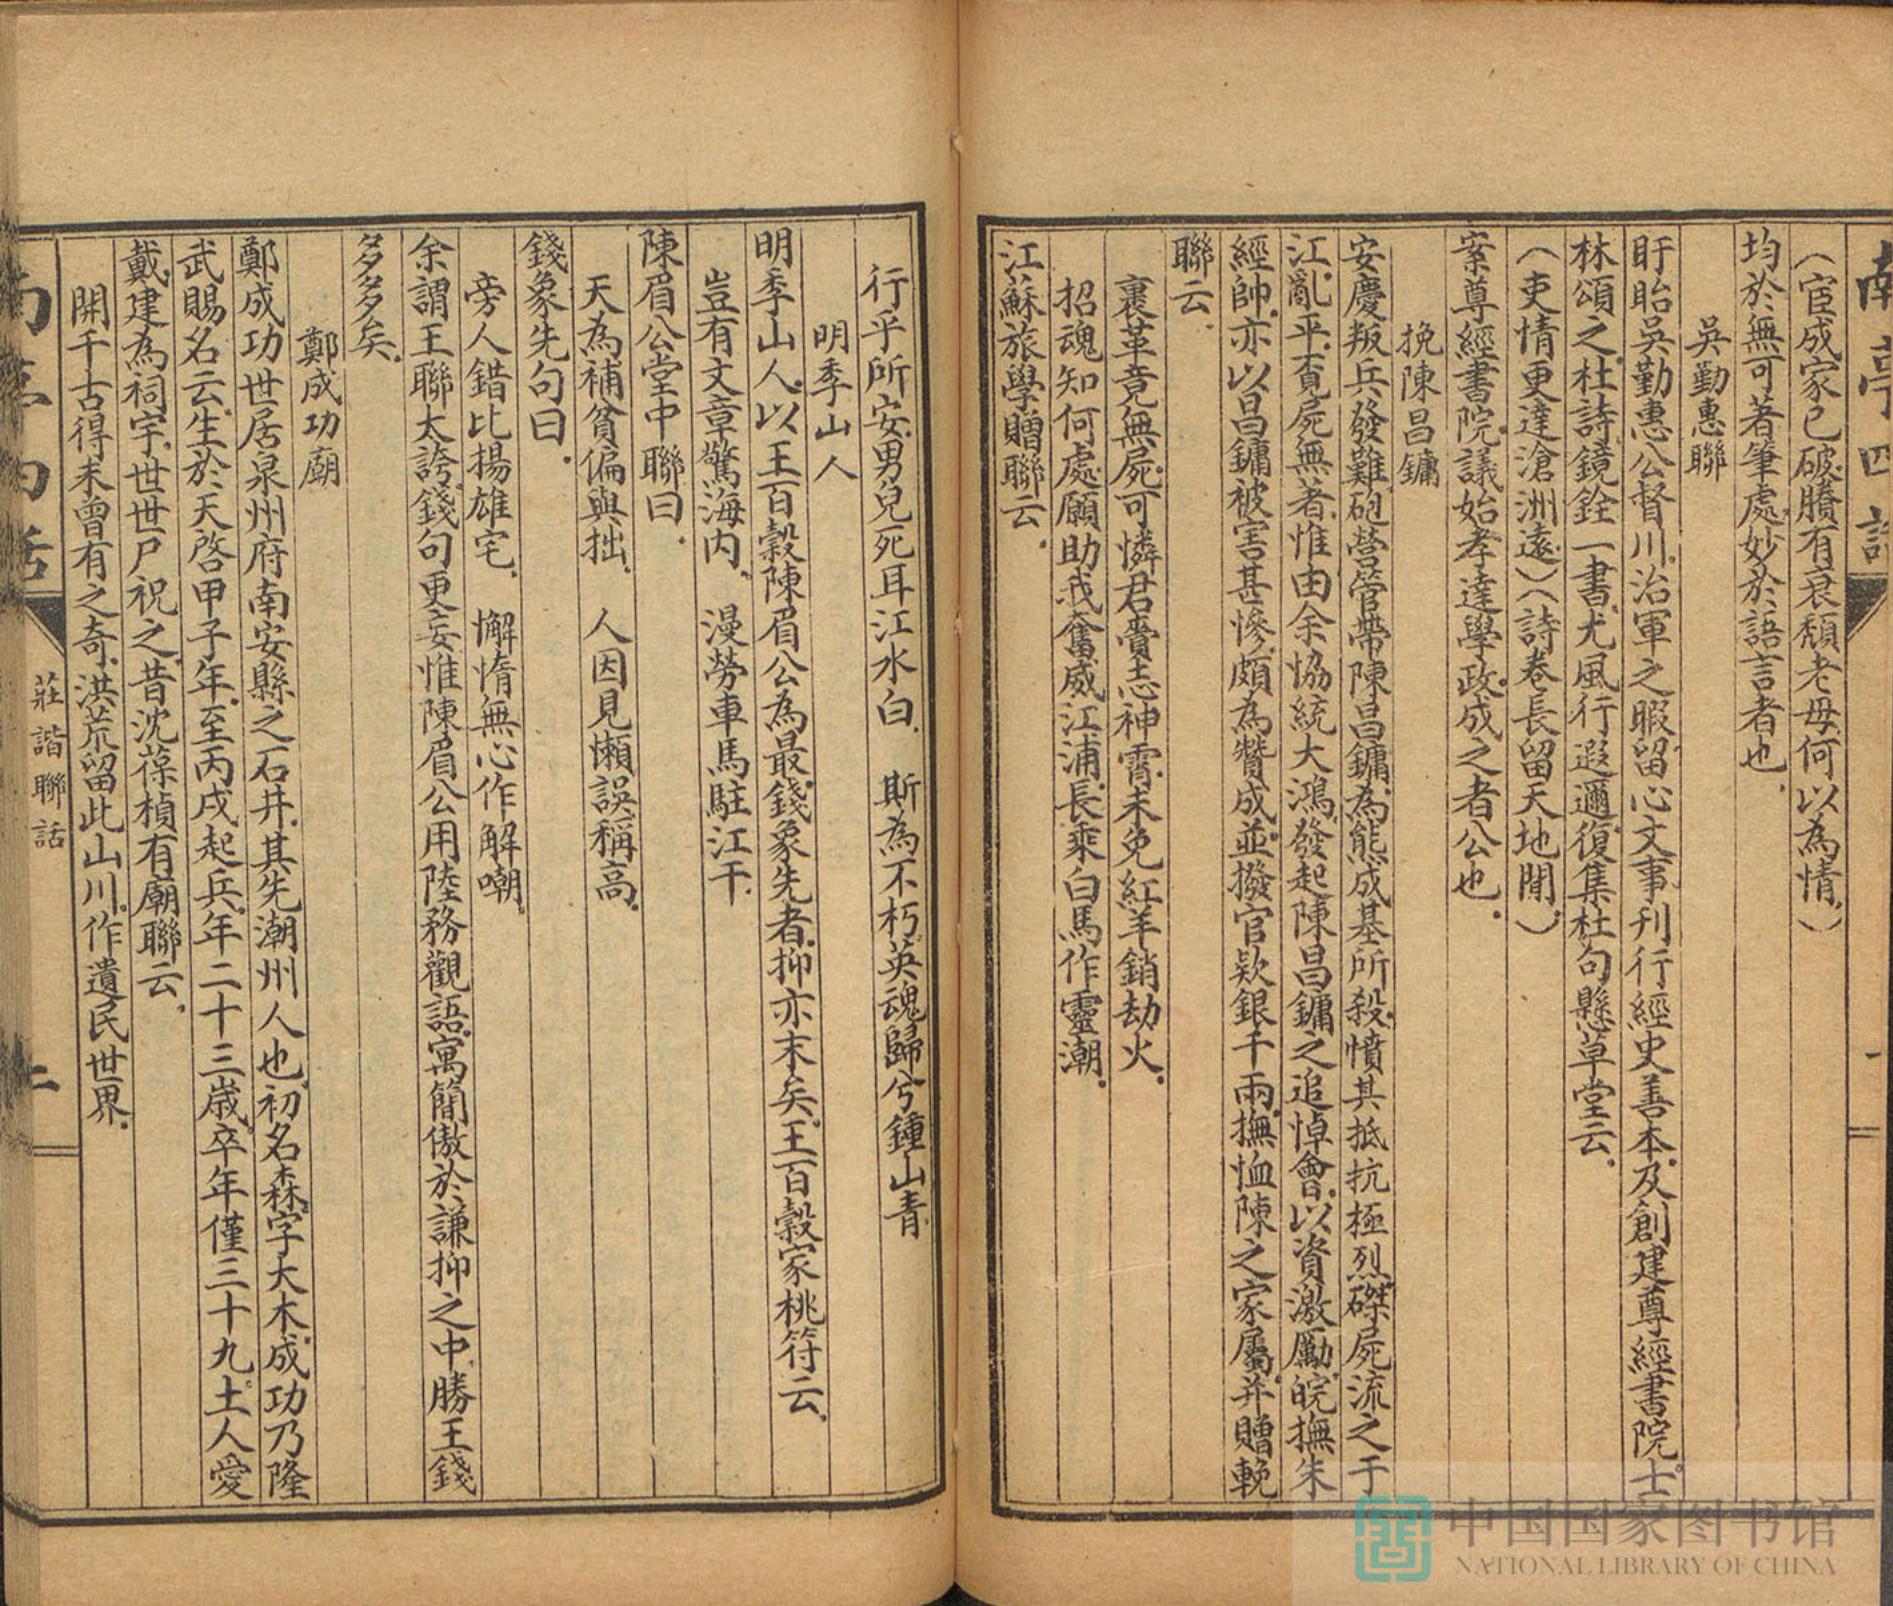 南亭四話
一
（宦成家已破。賸有衰頹老母。何以為情。）
均於無可著筆處。妙於語言者也。
吳勤惠聯
盱眙吳勤惠公督川。治軍之暇。留心文事。刊行經史善本。及創建尊經書院。士
林頌之。杜詩鏡銓一書。尤風行遐邇。復集杜句。懸草堂云。
（吏情更達滄洲遠。）（詩卷長留天地間。）
案尊經書院。議始孝達學政。成之者公也。
挽陳昌鏞
安慶叛兵發難。砲營管帶陳昌鏞。為熊成基所殺。憤其抵抗極烈。磔屍流之于
江。亂平。覓屍無著。惟由余協統大鴻。發起陳昌鏞之追悼會。以資激勵。皖撫朱
經帥。亦以昌鏞被害甚慘。頗為贊成。並撥官欵銀千兩。撫恤陳之家屬。并贈輓
聯云。
裹革竟無屍。可憐君賫志神霄。未免紅羊銷劫火。
招魂知何處。願助我奮威江浦。長乘白馬作靈潮。
江蘇旅學贈聯云。
行乎所安。男兒死耳江水白。　斯為不朽。英魂歸兮鍾山青。
明季山人
明季山人。以王百穀陳眉公為最。錢象先者。抑亦末矣。王百穀家桃符云。
豈有文章驚海內。　漫勞車馬駐江干。
陳眉公堂中聯曰。
天為補貧偏與拙。　人因見懶誤稱高。
錢象先句曰。
旁人錯比揚雄宅。　懈惰無心作解嘲。
余謂王聯太誇。錢句更妄。惟陳眉公用陸務觀語。寓簡傲於謙抑之中。勝王錢
多多矣。
鄭成功廟
鄭成功世居泉州府南安縣之石井。其先潮州人也。初名森。字大木。成功乃隆
武賜名云。生於天啓甲子年。至丙戌起兵。年二十三歲。卒年僅三十九。土人愛
戴。建為祠宇。世世尸祝之。昔沈葆楨有廟聯云。
開千古得未曾有之奇。洪荒留此山川。作遺民世界。
南亭四話
莊諧聯話
二
中国国家图书馆
NATIONAL LIBRARY OF CHINA